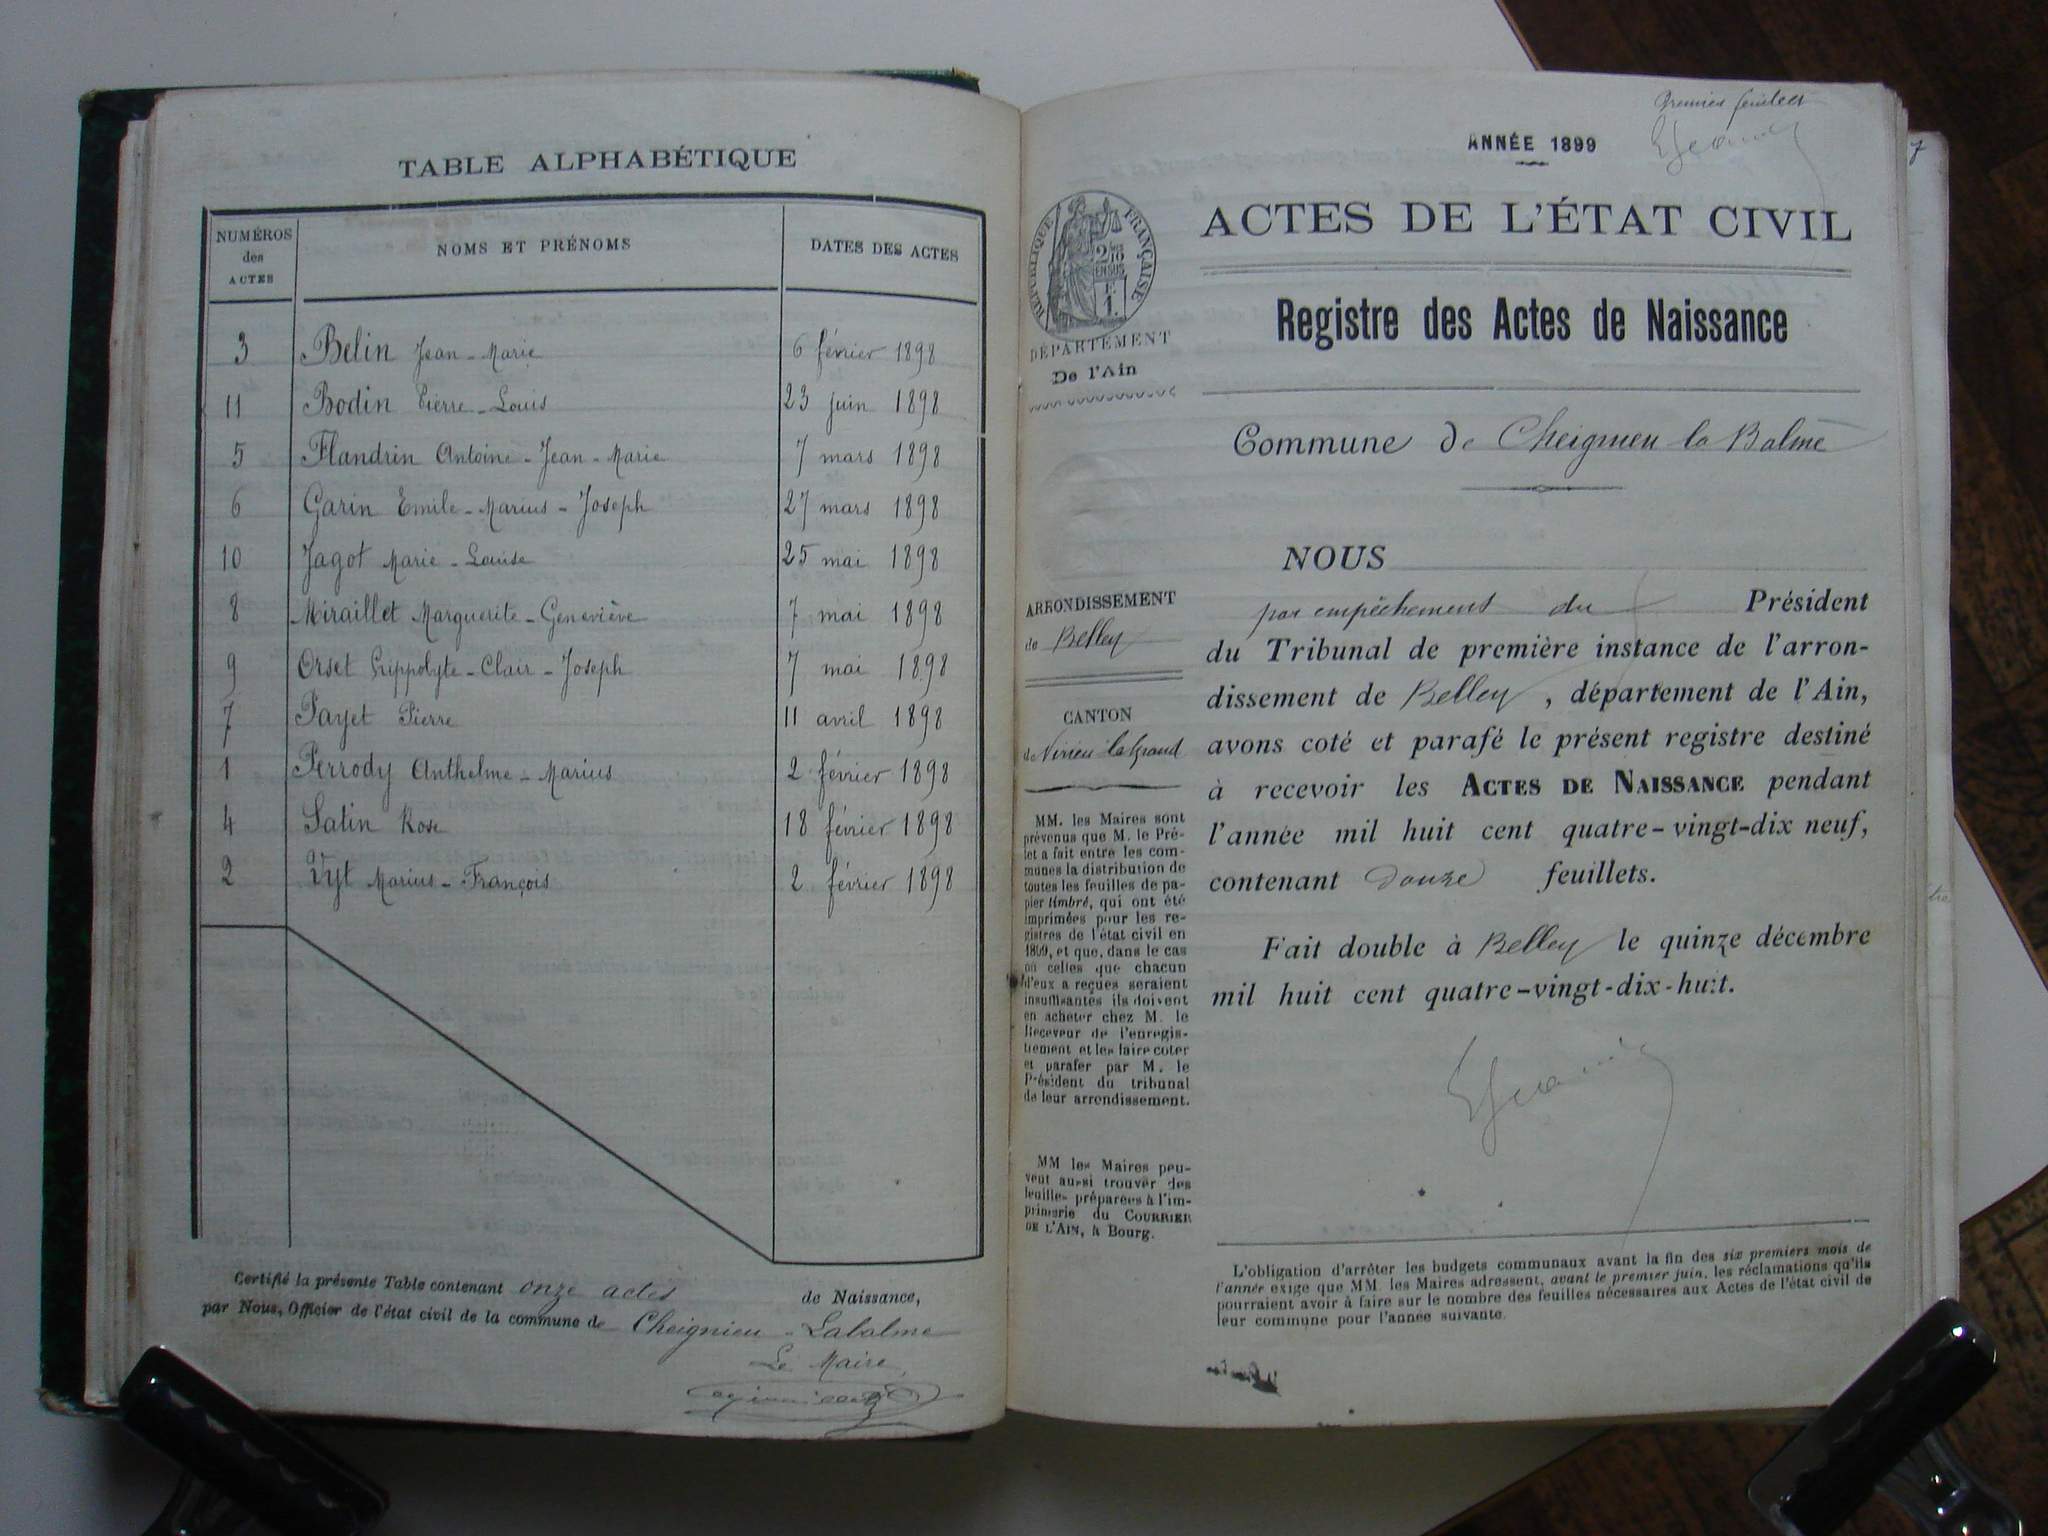 TABLE ALPHABÉTIQUE
NUMÉROS des ACTES NOMS ET PRÉNOMS DATES DES ACTES
3 Belin Jean-Marie 6 février 1898
11 Bodin Pierre-Louis 23 juin 1898
5 Flandrin Antoine-Jean-Marie 7 mars 1898
6 Garin Emile-Marius-Joseph 27 mars 1898
10 Jagot Marie-Louise 25 mai 1898
8 Miraillet Marguerite-Geneviève 7 mai 1898
9 Orset Hippolyte-Clair-Joseph 7 mai 1898
7 Payet Pierre 11 avril 1898
1 Perrody Anthelme-Marius 2 février 1898
4 Satin Rose 18 février 1898
2 Vyt Marius-François 2 février 1898
Certifié la présente Table contenant onze actes de Naissance,
par Nous, Officier de l'état civil de la commune de Cheignieu-Labalme
Le Maire,
Premier feuillet
ANNÉE 1899
ACTES DE L'ÉTAT CIVIL
RÉPUBLIQUE FRANÇAISE
DÉPARTEMENT
De l'Ain
Registre des Actes de Naissance
Commune de Cheignieu la Balme
ARRONDISSEMENT
de Belley
CANTON
de Virieu le Grand
MM. les Maires sont
prévenus que M. le Pré-
fet a fait entre les com-
munes la distribution de
toutes les feuilles de pa-
pier timbré, qui ont été
imprimées pour les re-
gistres de l'état civil en
1899, et que, dans le cas
où celles que chacun
d'eux a reçues seraient
insuffisantes ils doivent
en acheter chez M. le
Receveur de l'enregis-
trement et les faire coter
et parafer par M. le
Président du tribunal
de leur arrondissement.
MM les Maires peu-
vent aussi trouver des
feuilles préparées à l'im-
primerie du COURRIER
DE L'AIN, à Bourg.
NOUS
par empêchement du Président
du Tribunal de première instance de l'arron-
dissement de Belley, département de l'Ain,
avons coté et parafé le présent registre destiné
à recevoir les ACTES DE NAISSANCE pendant
l'année mil huit cent quatre-vingt-dix neuf,
contenant douze feuillets.
Fait double à Belley le quinze décembre
mil huit cent quatre-vingt-dix-huit.
L'obligation d'arrêter les budgets communaux avant la fin des six premiers mois de
l'année exige que MM. les Maires adressent, avant le premier juin, les réclamations qu'ils
pourraient avoir à faire sur le nombre des feuilles nécessaires aux Actes de l'état civil de
leur commune pour l'année suivante.